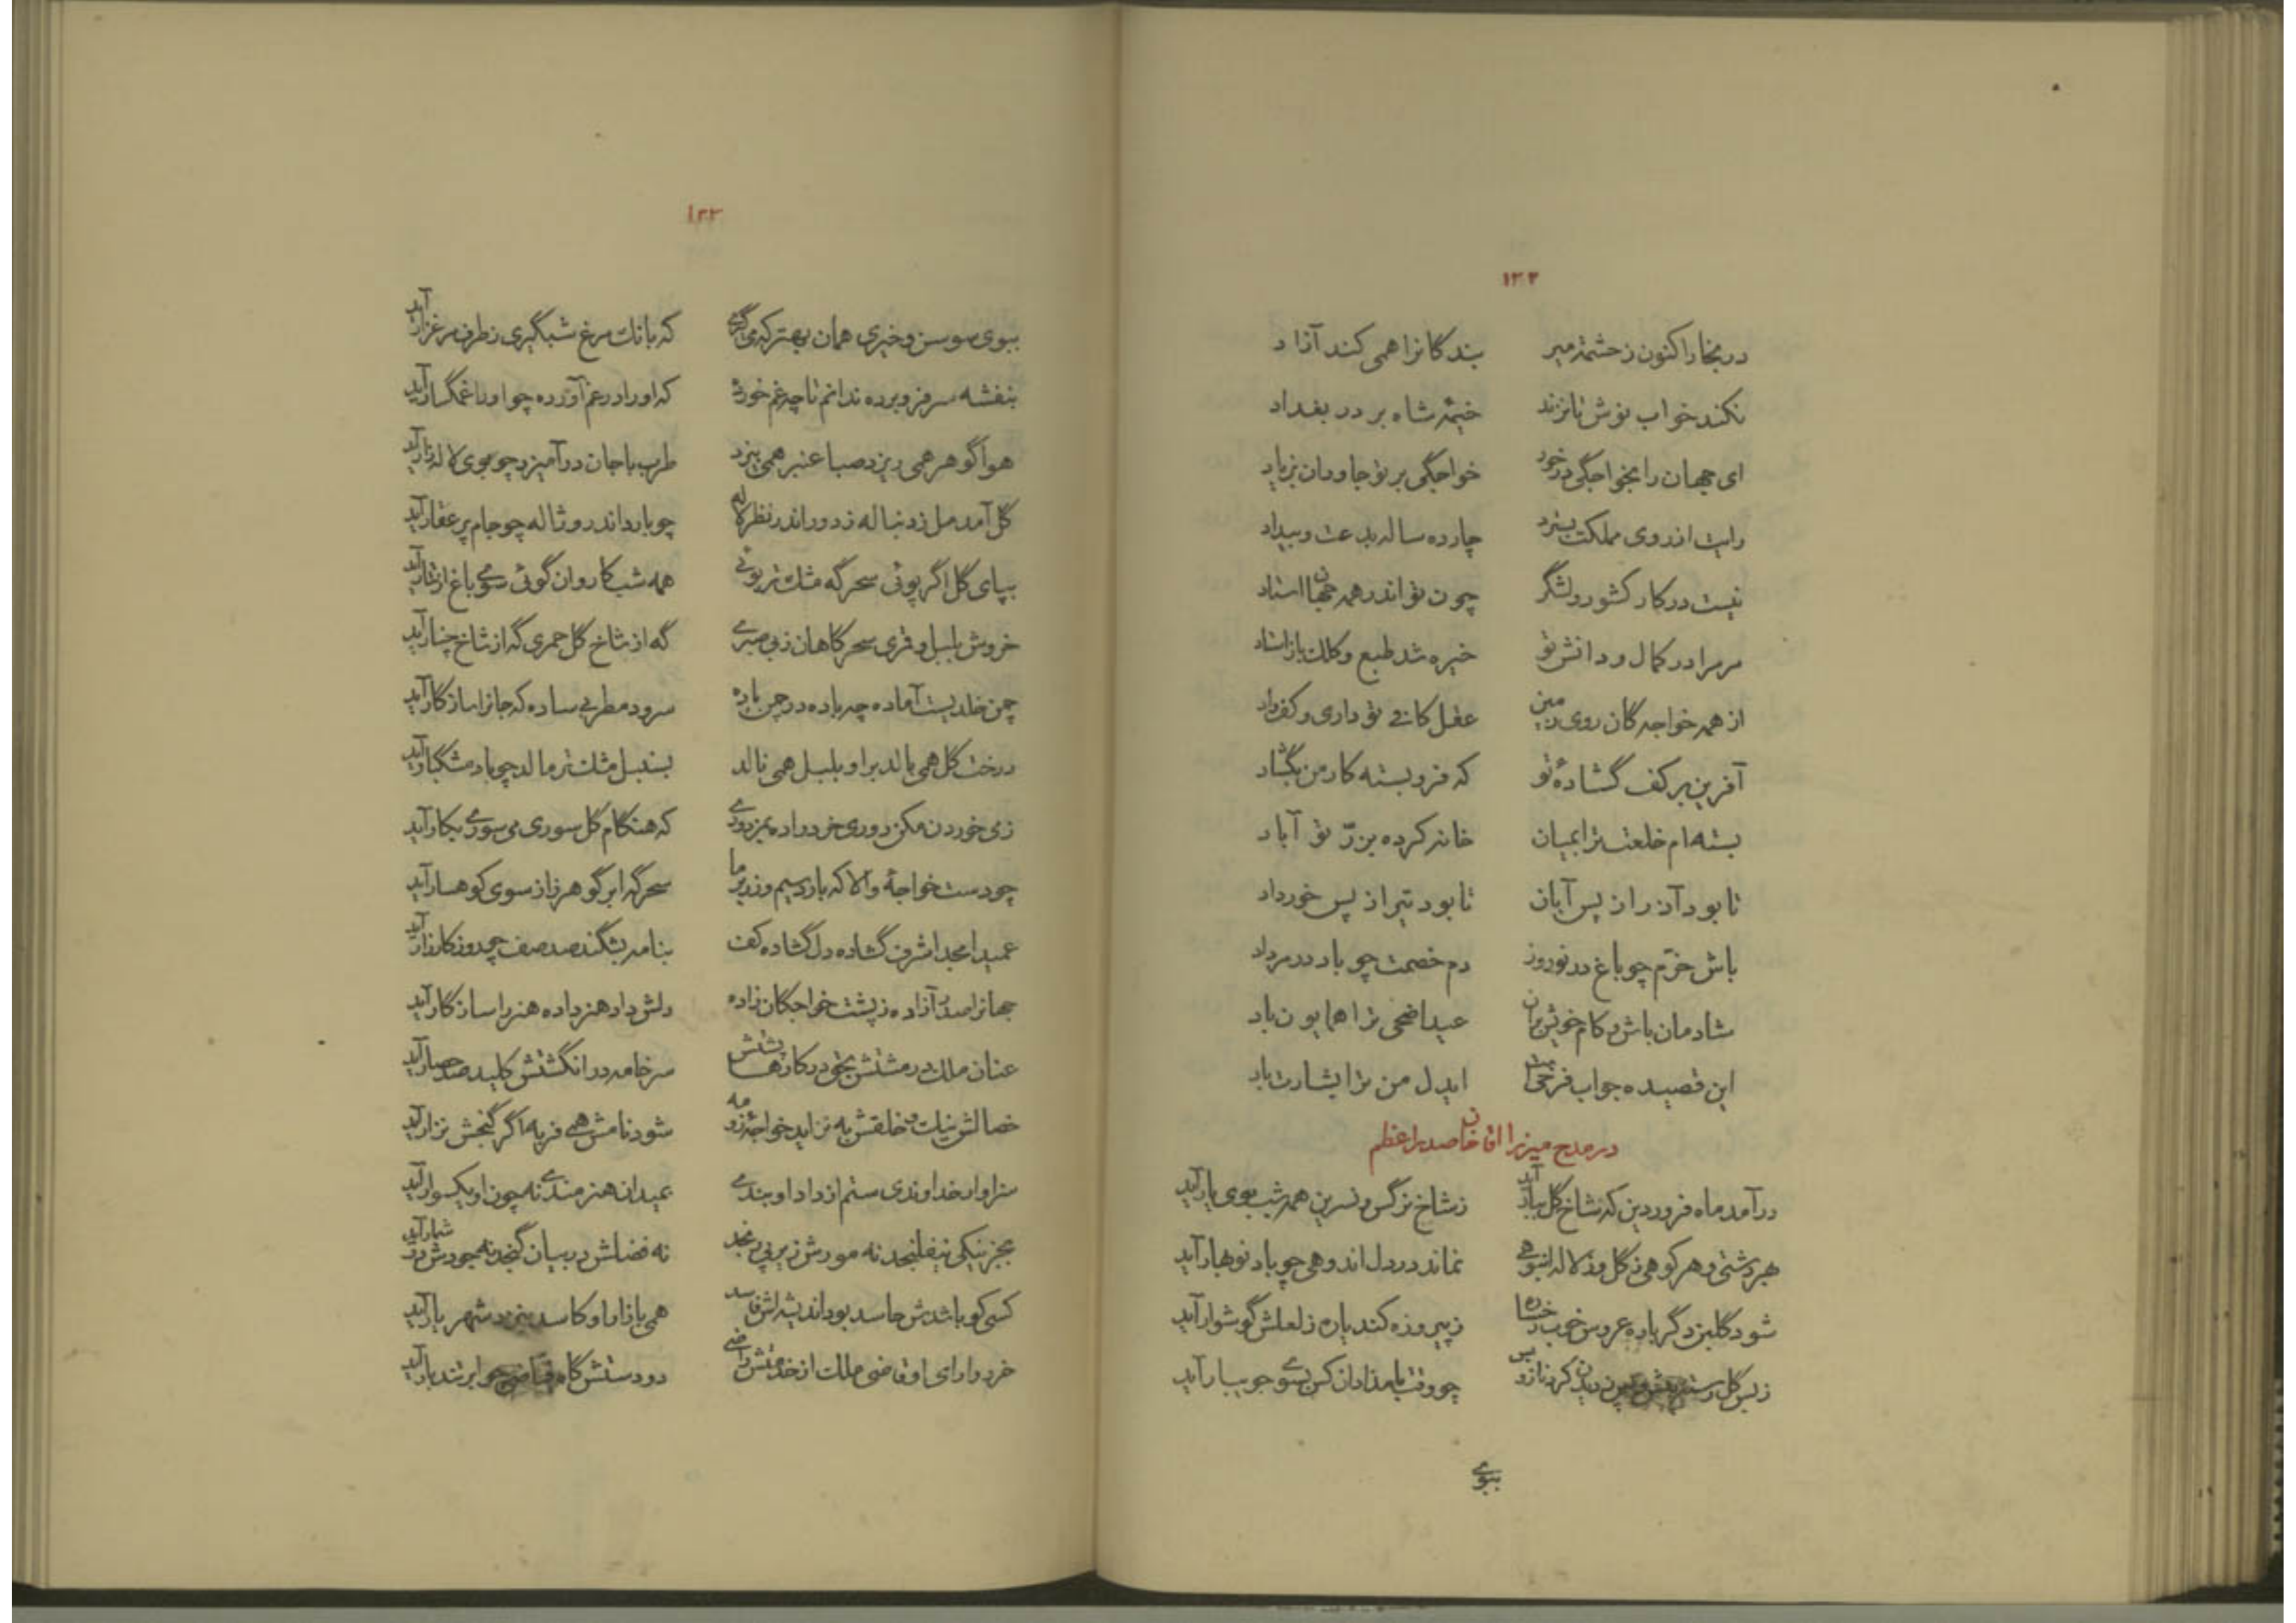 ۱۳۲
در بخارا کنون ز حشمت میر بندگانرا همی کند آزاد
نکند خواب نوش تا نزند خیمهٔ شاه بر در بغداد
ای جهان را بخواجگی در خور خواجگی بر تو جاودان بزیاد
رایت از روی مملکت بسترد چارده ساله بدعت و بیداد
نیست در کار کشور و لشگر چون تو اندر همه جهان استاد
مر مرا در کمال و دانش تو خیره شد طبع و کلک باز استاد
از همه خواجه گان روی زمین عقل کافی تو داری و کف راد
آفرین بر کف گشادهٔ تو که فرو بسته کار من بگشاد
بسته ام خلعت ترا بمیان خانه کرده بزرّ تو آباد
تا بود آذر از پس آبان تا بود تیر از پس خورداد
باش خرّم چو باغ در نوروز دم خصمت چو باد در مرداد
شادمان باش و کام خویش بران عید اضحی ترا همایون باد
این قصیده جواب فرخی است ایدل من ترا بشارت باد
در مدح میرزا اقا خان صدر اعظم
در آمد ماه فروردین که شاخ گل ببار آید ز شاخ نرگس و نسرین همه شب بوی یار آید
هر دشتی و هر کوهی ز گل وز لاله انبوهی نماند در دل اندوهی چو باد نوبهار آید
شود گلبن دگر باره عروس خوب رخساره ز پیروزه کند یاره ز لعلش گوشوار آید
ز بس گل رسته پیش چون دیدن کرد نازو بر چو وقت بامدادان کس بسوی جویبار آید
ببوی
۱۳۳
ببوی سوسن و خیری همان بهتر که می گیری که بانک مرغ شبگیری ز طرف مرغزار آید
بنفشه سر فرو برده ندانم تا چه غم خورده که او را در غم آورده چو او را غمگسار آید
هوا گوهر همی ریزد صبا عنبر همی بیزد طرب با جان در آمیزد چو بوی لاله زار آید
گل آمد مل ز دنباله ز دور اندر نظر لاله چو بارد اندر و ژاله چو جام پر عقار آید
بپای گل اگر پوئی سحرگه مشک تر بوئی همه شب کاروان گوئی سوی باغ از تتار آید
خروش بلبل و قمری سحرگاهان ز بی صبری گه از شاخ گل حمری گه از شاخ چنار آید
چمن خلدیست آماده چه باده در چمن باده سرود مطربی ساده که جانرا سازگار آید
درخت گل همی بالد براو بلبل همی نالد بسنبل مشک تر مالد چو باد مشکبار آید
ز می خوردن مکن دوری خرد را ده بمی زوری که هنگام گل سوری می سوری بکار آید
چو دست خواجهٔ والا که بارد سیم و زر بر ما سحرگه ابر گوهر زا ز سوی کوهسار آید
عمید امجد اشرف گشاده دل گشاده کف بنامه بشکند صد صف چو روز کارزار آید
جهانرا صدر آزاده ز پشت خواجگان زاده دلش داد هنر داده هنر را سازگار آید
عنان ملک در مشتش بحق در کارها پشتش سر خامه در انگشتش کلید صد حصار آید
خصالش نیک و خلقش به نزاید خواجهٔ زو مه شود نامش همی فربه اگر گنجش نزار آید
سزاوار خداوندی ستم از داد او بندی بمیدان هنرمندی نه چون او یکسوار آید
بجز نیکی نیلفنجد نه مورش زیر پی رنجد نه فضلش در بیان گنجد نه جودش در شمار آید
کسی کو باشدش حاسد بود اندیشه اش فاسد همی بازار او کاسد بنزد شهریار آید
خرد دارای او قاضی ملک از خدمتش راضی دو دستش گاه فیاضی چو ابر تند بار آید